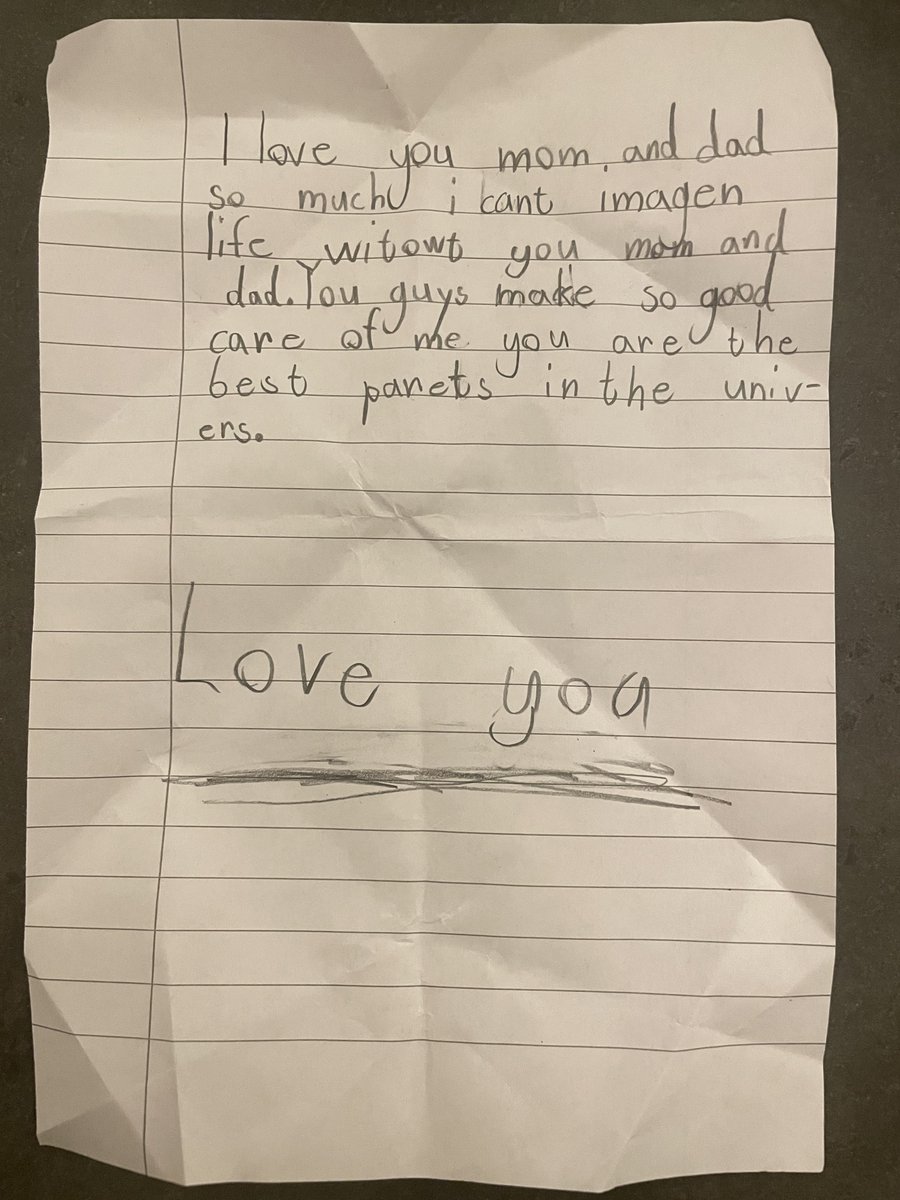 I love you mom and dad
so much i cant imagen
life witowt you mom and
dad. You guys make so good
care of me you are the
best panets in the univ-
ers.
Love you